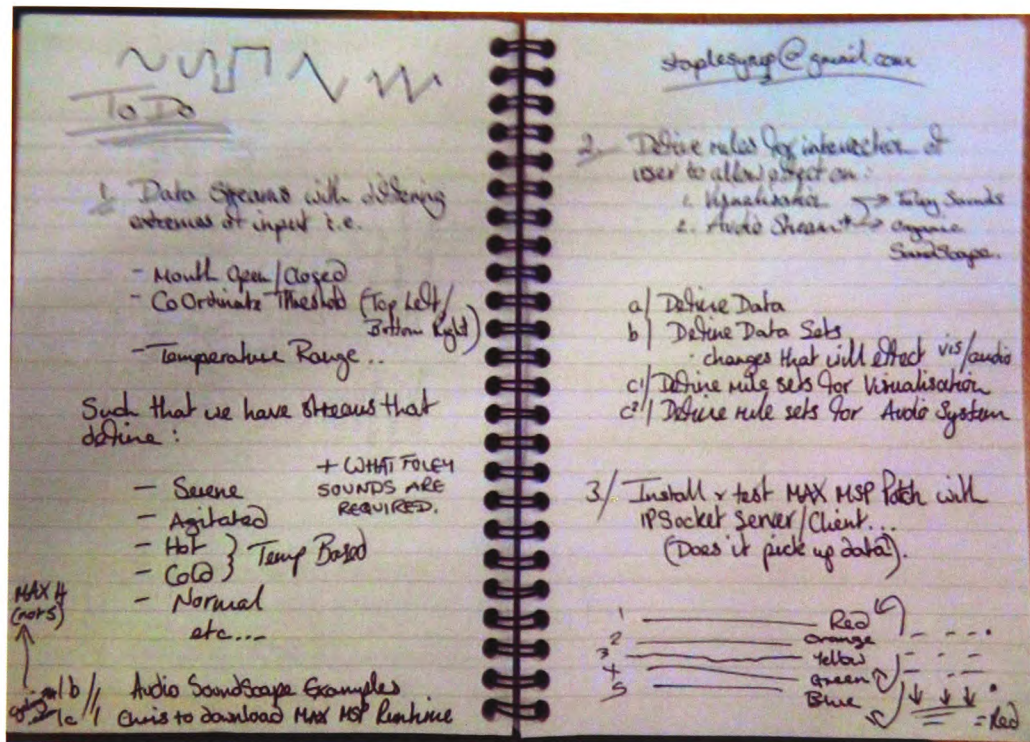 To Do
1. Data Streams with differing
extremes of input i.e.
- Mouth Open/Closed
- CoOrdinate Threshold (Top Left/
Bottom Right)
- Temperature Range..
Such that we have streams that
define:
- Serene
- Agitated
- Hot } Temp Based
- Cold
- Normal
etc....
+ WHAT FOLEY
SOUNDS ARE
REQUIRED.
MAX 4
(not 5)
1b // Audio SoundScape Examples
1c // Chris to download MAX MSP Runtime
staplesyrup@gmail.com
2. Define rules for interaction of
user to allow effect on:
1. Visualisation
2. Audio Stream
→ Foley Sounds
→ Organic
SoundScape.
a/ Define Data
b/ Define Data Sets
: changes that will effect vis/audio
c1/ Define rule sets for Visualisation
c2/ Define rule sets for Audio System
3./ Install + test MAX MSP Patch with
IPSocket Server/Client...
(Does it pick up data?).
1 Red
2 Orange
3 Yellow
4 Green
5 Blue
= Red